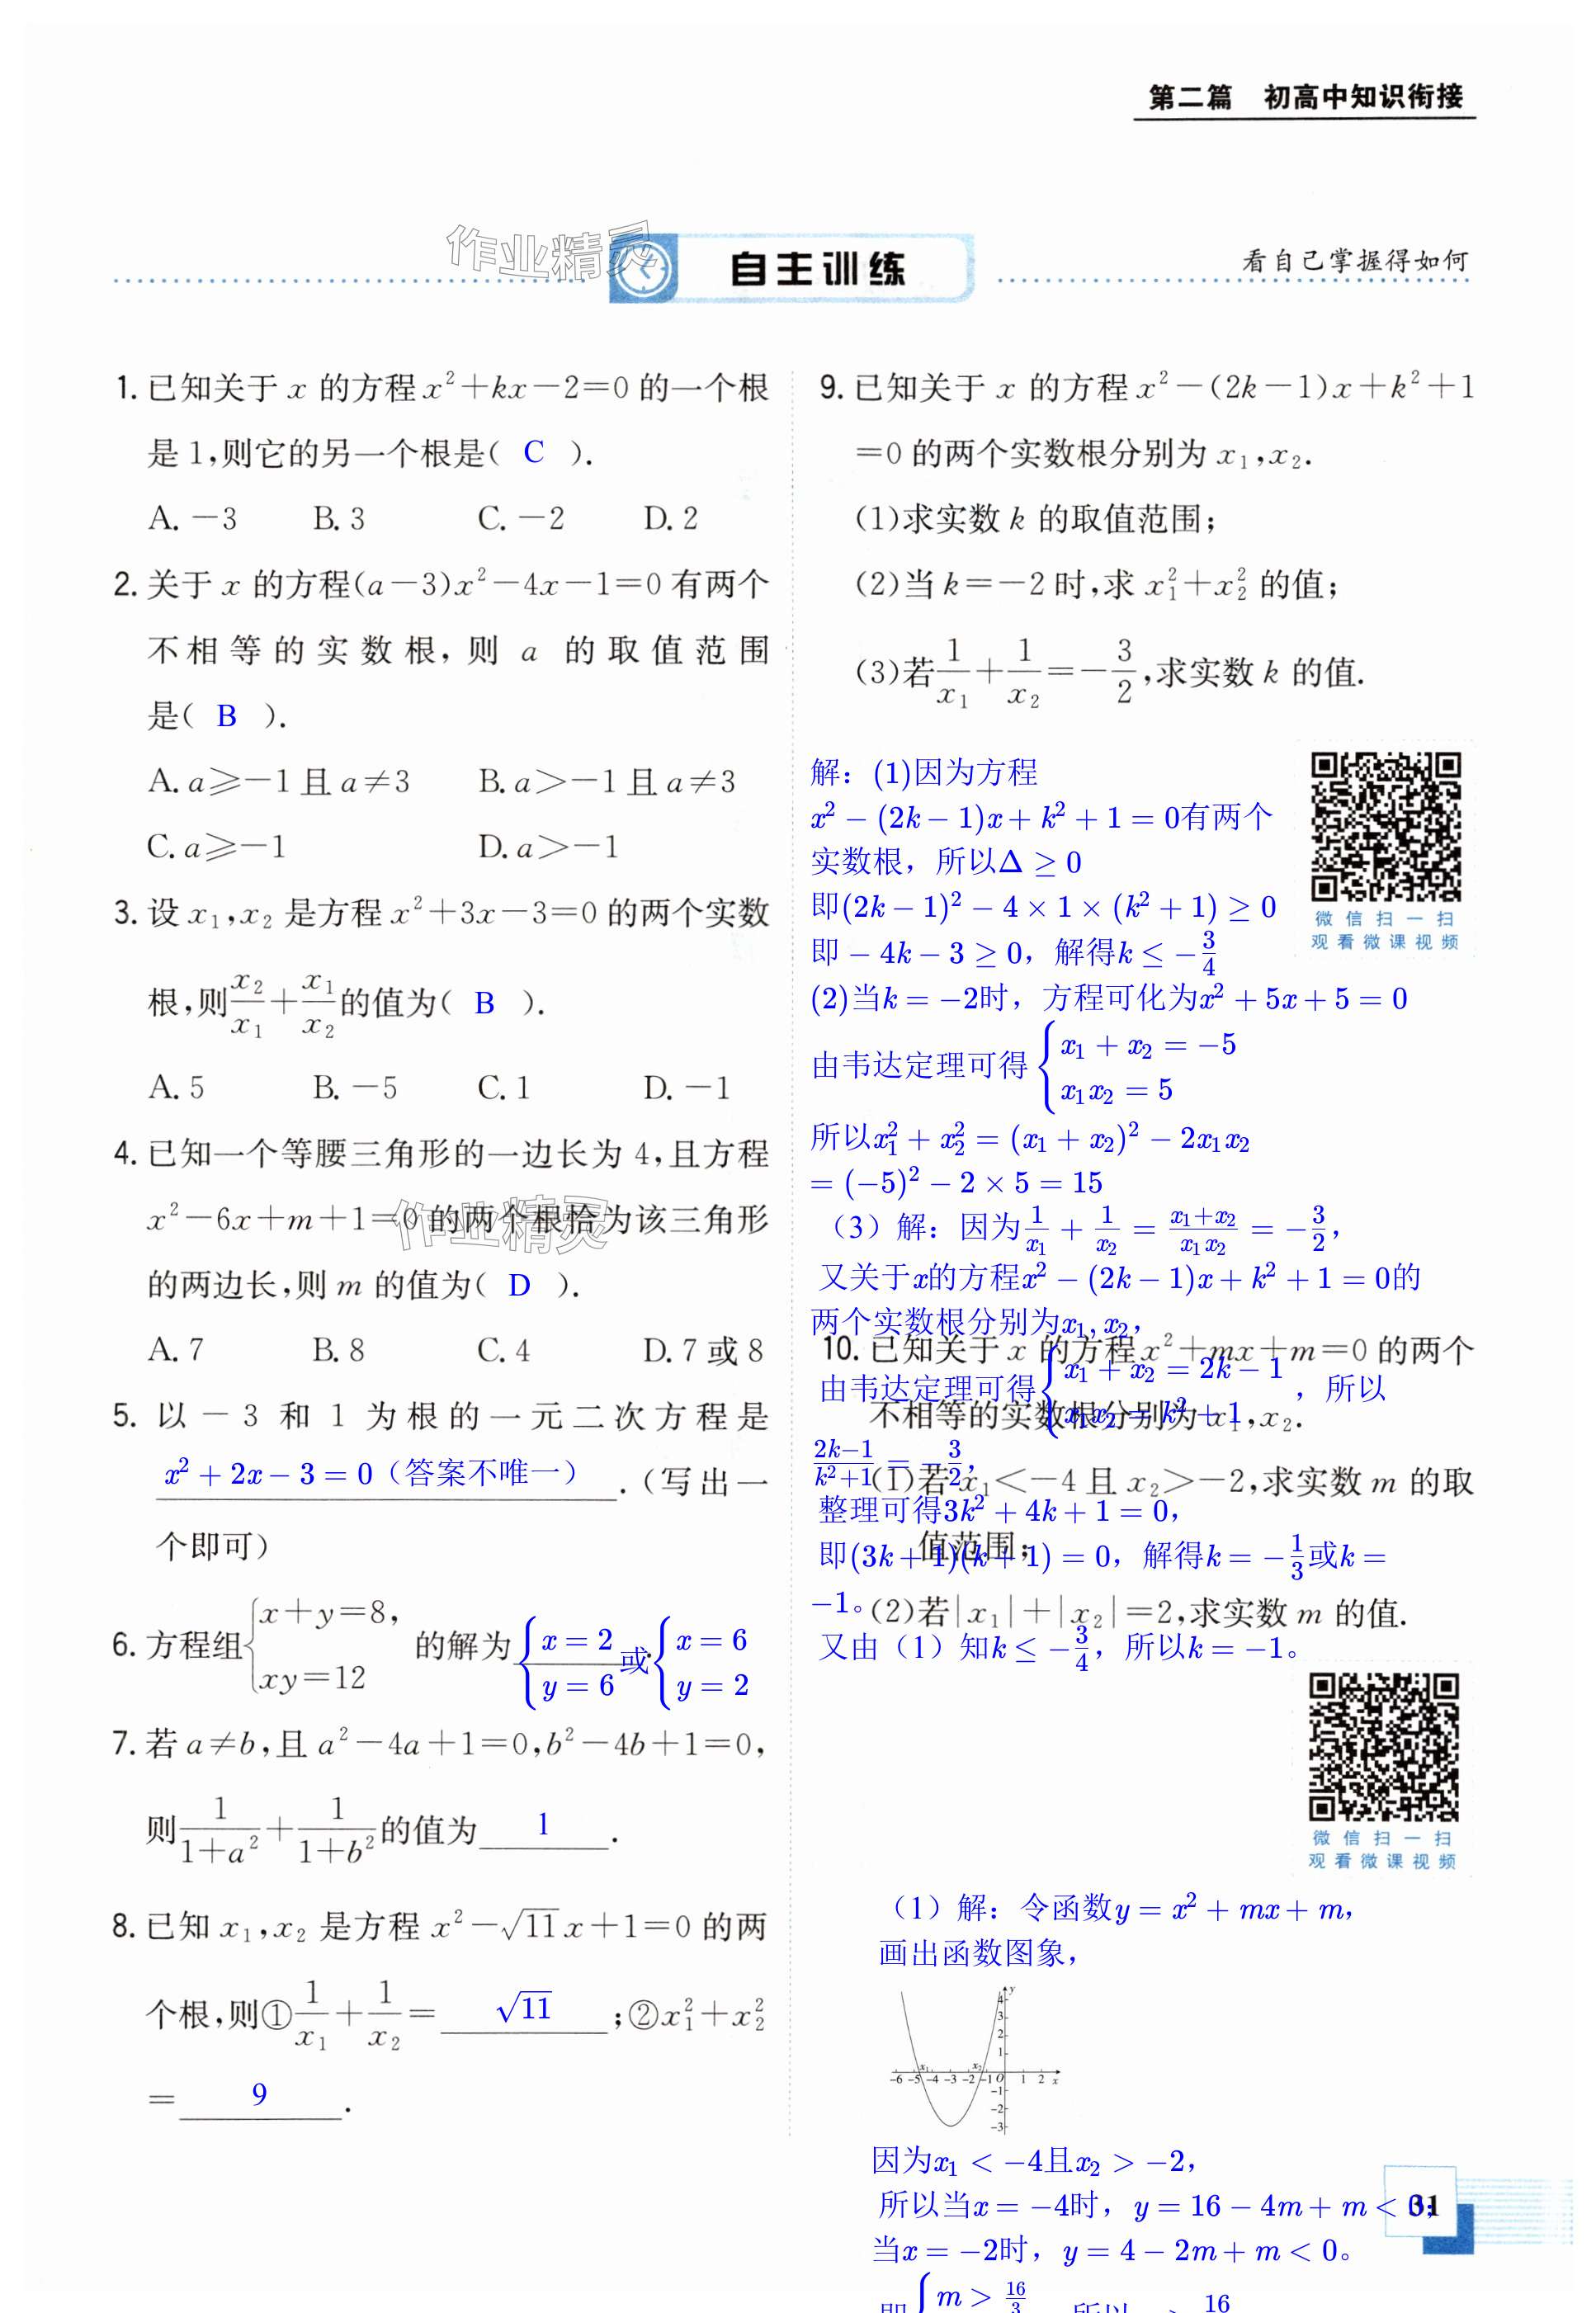 第二篇 初高中知识衔接
作业精灵
自主训练
看自己掌握得如何
1. 已知关于 x 的方程 x²+kx-2=0 的一个根
是 1,则它的另一个根是( C ).
A. -3 B. 3 C. -2 D. 2
2. 关于 x 的方程(a-3)x²-4x-1=0 有两个
不相等的实数根,则 a 的取值范围
是( B ).
A. a≥-1 且 a≠3 B. a>-1 且 a≠3
C. a≥-1 D. a>-1
3. 设 x₁,x₂ 是方程 x²+3x-3=0 的两个实数
根,则 x₂/x₁ + x₁/x₂ 的值为( B ).
A. 5 B. -5 C. 1 D. -1
4. 已知一个等腰三角形的一边长为 4,且方程
x²-6x+m+1=0 的两个根恰为该三角形
作业精灵
的两边长,则 m 的值为( D ).
A. 7 B. 8 C. 4 D. 7 或 8
5. 以 -3 和 1 为根的一元二次方程是
x²+2x-3=0（答案不唯一） .(写出一
个即可)
6. 方程组{x+y=8, xy=12 的解为 {x=2 y=6 或 {x=6 y=2 .
7. 若 a≠b,且 a²-4a+1=0,b²-4b+1=0,
则 1/(1+a²) + 1/(1+b²) 的值为 1 .
8. 已知 x₁,x₂ 是方程 x²-√11x+1=0 的两
个根,则① 1/x₁ + 1/x₂ = √11 ;②x₁²+x₂²
= 9 .
9. 已知关于 x 的方程 x²-(2k-1)x+k²+1
=0 的两个实数根分别为 x₁,x₂.
(1)求实数 k 的取值范围;
(2)当 k=-2 时,求 x₁²+x₂² 的值;
(3)若 1/x₁ + 1/x₂ = -3/2 ,求实数 k 的值.
解：(1)因为方程
x²-(2k-1)x+k²+1=0有两个
实数根，所以Δ≥0
即(2k-1)²-4×1×(k²+1)≥0
即-4k-3≥0，解得k≤-3/4
微信扫一扫
观看微课视频
(2)当k=-2时，方程可化为x²+5x+5=0
由韦达定理可得{x₁+x₂=-5 x₁x₂=5
所以x₁²+x₂²=(x₁+x₂)²-2x₁x₂
=(-5)²-2×5=15
（3）解：因为1/x₁+1/x₂=(x₁+x₂)/(x₁x₂)=-3/2，
又关于x的方程x²-(2k-1)x+k²+1=0的
两个实数根分别为x₁,x₂，
由韦达定理可得{x₁+x₂=2k-1 x₁x₂=k²+1，所以
(2k-1)/(k²+1)=-3/2，
整理可得3k²+4k+1=0，
即(3k+1)(k+1)=0，解得k=-1/3或k=
-1。
又由（1）知k≤-3/4，所以k=-1。
10. 已知关于 x 的方程 x²+mx+m=0 的两个
不相等的实数根分别为 x₁,x₂.
(1)若 x₁<-4 且 x₂>-2,求实数 m 的取
值范围;
(2)若|x₁|+|x₂|=2,求实数 m 的值.
微信扫一扫
观看微课视频
（1）解：令函数y=x²+mx+m，
画出函数图象，
y
4
3
2
1
x₁ x₂
-6 -5 -4 -3 -2 -1 O 1 2 x
-1
-2
-3
因为x₁<-4且x₂>-2，
所以当x=-4时，y=16-4m+m<0；
当x=-2时，y=4-2m+m<0。
31